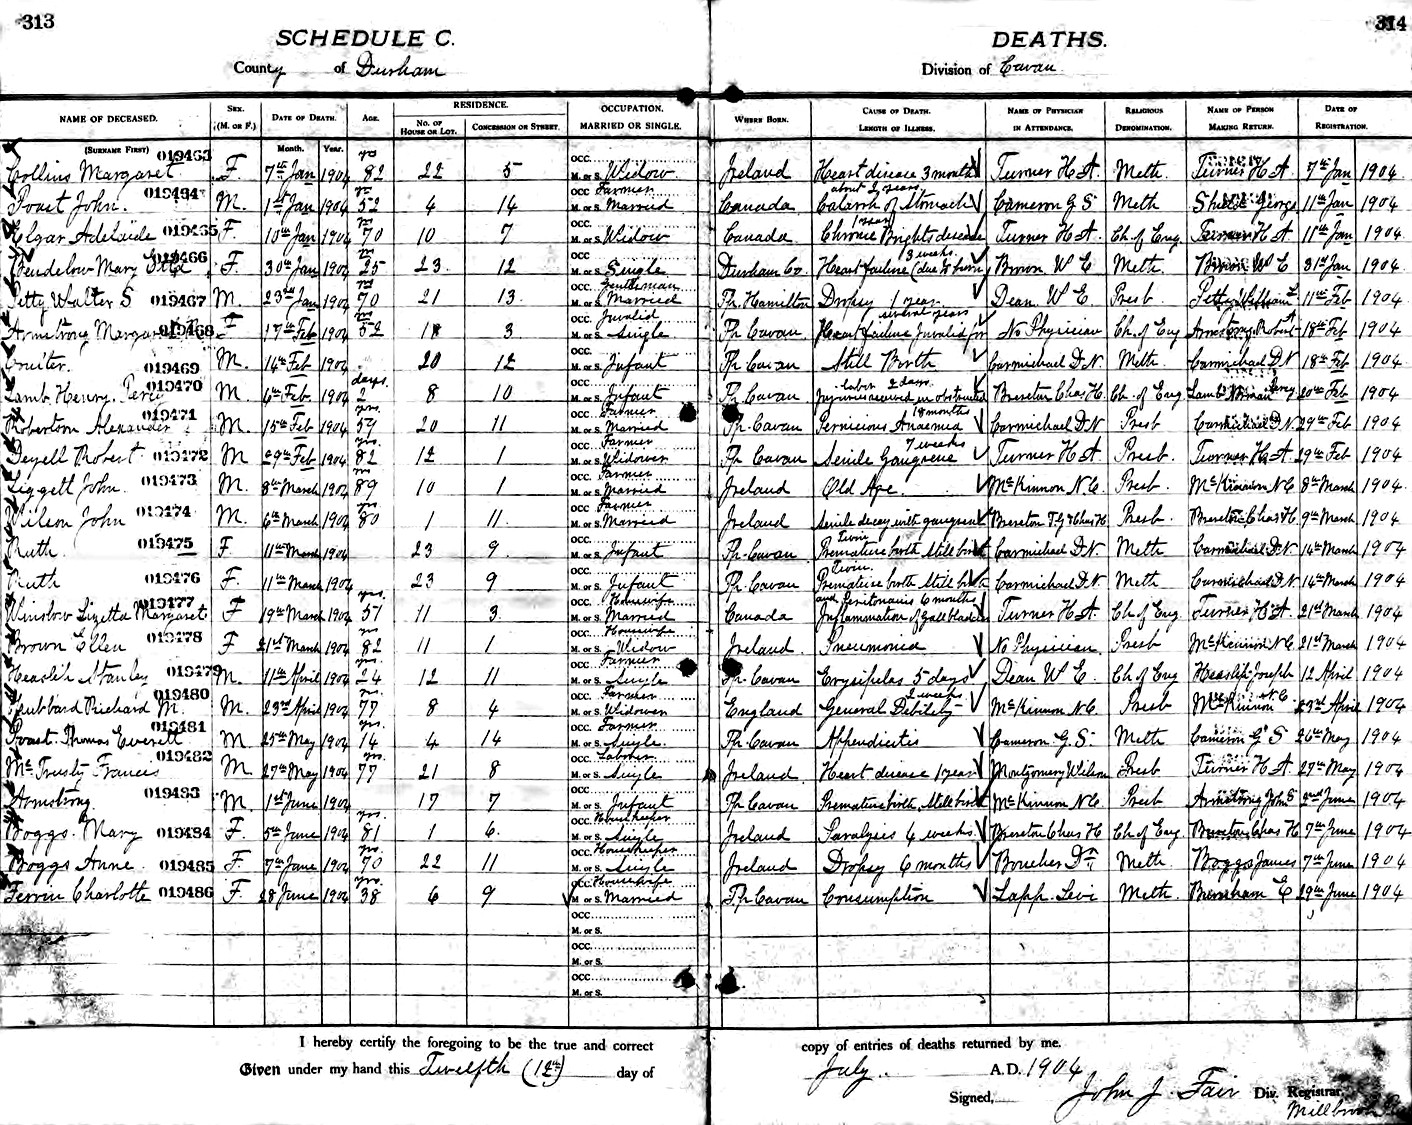 313
314
SCHEDULE C.
DEATHS.
County of Durham
Division of Cavan
NAME OF DECEASED. SEX. DATE OF DEATH. AGE. RESIDENCE. OCCUPATION. WHERE BORN. CAUSE OF DEATH. NAME OF PHYSICIAN RELIGIOUS NAME OF PERSON DATE OF
(SURNAME FIRST) (M. OR F.) Month. Year. NO. OF HOUSE OR LOT. CONCESSION OR STREET. MARRIED OR SINGLE. LENGTH OF ILLNESS. IN ATTENDANCE. DENOMINATION. MAKING RETURN. REGISTRATION.
Collins Margaret 019463 F. 7th Jan 1904 yrs 82 22 5 OCC. M. or S. Widow Ireland Heart disease 3 months Turner H A Meth Turner H A 7th Jan 1904
Foast John. M. Jan 1904 52 4 14 OCC. Farmer M. or S. Married Canada about 2 years Catarrh of Stomach Cameron G S Meth George 11th Jan 1904
Elgar Adelaide F. 10th Jan 1904 70 10 7 OCC. M. or S. Widow Canada 1 year Chronic Brights disease Turner H A. Ch. of Eng. Turner H A 11th Jan 1904
Mary 019466 F. 30th Jan 1904 25 23 12 OCC. M. or S. Single Durham Co. 3 weeks Heart failure (due to burn Brown W E Meth. Brown W E 31st Jan 1904
Petty Walter S 019467 M. 23rd Jan 1904 70 21 13. OCC. Gentleman M. or S. Married Tp. Hamilton Dropsy 1 year Dean. W E. Presb. Petty William 11th Feb 1904
Armstrong 019468 F 17th Feb 1904 52 18 3 OCC. Invalid M. or S. Single Tp. Cavan several years Heart failure Invalid for No Physician Ch. of Eng Armstrong Robert A 18th Feb 1904
019469 M. 14th Feb 1904 20 12 OCC. M. or S. Infant Tp. Cavan Still Birth Carmichael D. N. Meth Carmichael D N 18th Feb 1904
Lamb Henry Percy 019470 M. 6th Feb. 1904 days 2 8 10 OCC. M. or S. Infant Tp. Cavan labor 2 days Injuries received in obstructed Brereton Chas H. Ch. of Eng Lamb Norman Percy 20th Feb 1904
Robertson Alexander 019471 M. 15th Feb 1904 yrs. 59 20 11 OCC. Farmer M. or S. Married Tp. Cavan 18 months Pernicious Anaemia Carmichael D. N Presb Carmichael D. N. 29th Feb 1904
Deyell Robert 019472 M 29th Feb 1904 yrs. 82 12 1 OCC. Farmer M. or S. Widower Tp Cavan 7 weeks Senile Gangrene Turner H A Presb. Turner H A 29th Feb 1904
Liggett John. 019473 M. 8th March 1904 89 10 1 OCC. Farmer M. or S. Married Ireland Old Age. McKinnon N C. Presb. McKinnon N C 8th March 1904
Wilson John 019474 M. 6th March 1904 yrs 80 1 11. OCC. Farmer M. or S. Married Ireland Senile decay with gangrene Brereton T. G & Chas H Presb. Brereton Chas H. 9th March 1904
Ruth. 019475 F. 11th March 1904 23 9. OCC. M. or S. Infant Tp. Cavan Twin Premature birth Still birth Carmichael D. N. Meth Carmichael D. N 14th March 1904
Ruth 019476 F. 11th March 1904 23 9 OCC. M. or S. Infant Tp. Cavan Twin. Premature birth Still birth Carmichael D. N Meth Carmichael D. N 14th March 1904
Winslow Lizetta Margaret 019477 F 19th March 1904 yrs. 57 11 3. OCC. Housewife M. or S. Married Canada and Peritonitis 6 months Inflammation of gall bladder Turner H A. Ch. of Eng. Turner H A 21st March 1904
Brown Ellen 019478 F 21st March 1904 yrs 82 11 1 OCC. Housewife M. or S. Widow Ireland. Pneumonia No Physician. Presb McKinnon N C 21st March 1904
Heaslip Stanley 019479 M. 11th April 1904 yrs. 24 12 11 OCC. Farmer M. or S. Single Tp. Cavan Erysipelas 5 days Dean W E. Ch of Eng Heaslip Joseph 12 April 1904
Hubbard Richard M. 019480 M. 23rd April 1904 77 8 4 OCC. Farmer M. or S. Widower England 2 weeks General Debility McKinnon N C. Presb McKinnon N C 23rd April 1904
Foast. Thomas Everett 019481 M 25th May 1904 yrs. 14 4 14 OCC. Farmer M. or S. Single. Tp. Cavan Appendicitis Cameron G. S. Meth Cameron G S 26th May 1904
McTrusty Francis 019482 M 27th May 1904 yrs. 77 21 8 OCC. Laborer M. or S. Single Ireland Heart disease 1 year Montgomery Wilson Presb Turner H A. 27th May 1904
Armstrong. 019483 M. 1st June 1904 17 7 OCC. M. or S. Infant Tp Cavan Premature birth, Still birth McKinnon N C. Presb Armstrong John S 2nd June 1904
Boggs. Mary 019484 F. 5th June 1904 yrs. 81 1 6. OCC. Housekeeper M. or S. Single Ireland Paralysis 4 weeks. Brereton Chas H Ch of Eng. Brereton Chas H 7th June 1904
Boggs Anne. 019485 F 7th June 1904 yrs. 70 22 11 OCC. Housekeeper M. or S. Single Ireland Dropsy 6 months Boucher Dr Meth. Boggs James 7th June 1904
Ferrin Charlotte 019486 F. 28 June 1904 yrs 38 6 9 OCC. Housewife M. or S. Married Tp Cavan Consumption Lapp. Levi Meth E 29th June 1904
OCC.
M. or S.
OCC.
M. or S.
OCC.
M. or S.
I hereby certify the foregoing to be the true and correct copy of entries of deaths returned by me.
Given under my hand this Twelfth (12th) day of July. A.D. 1904
Signed, John J. Fair Div. Registrar.
Millbrook